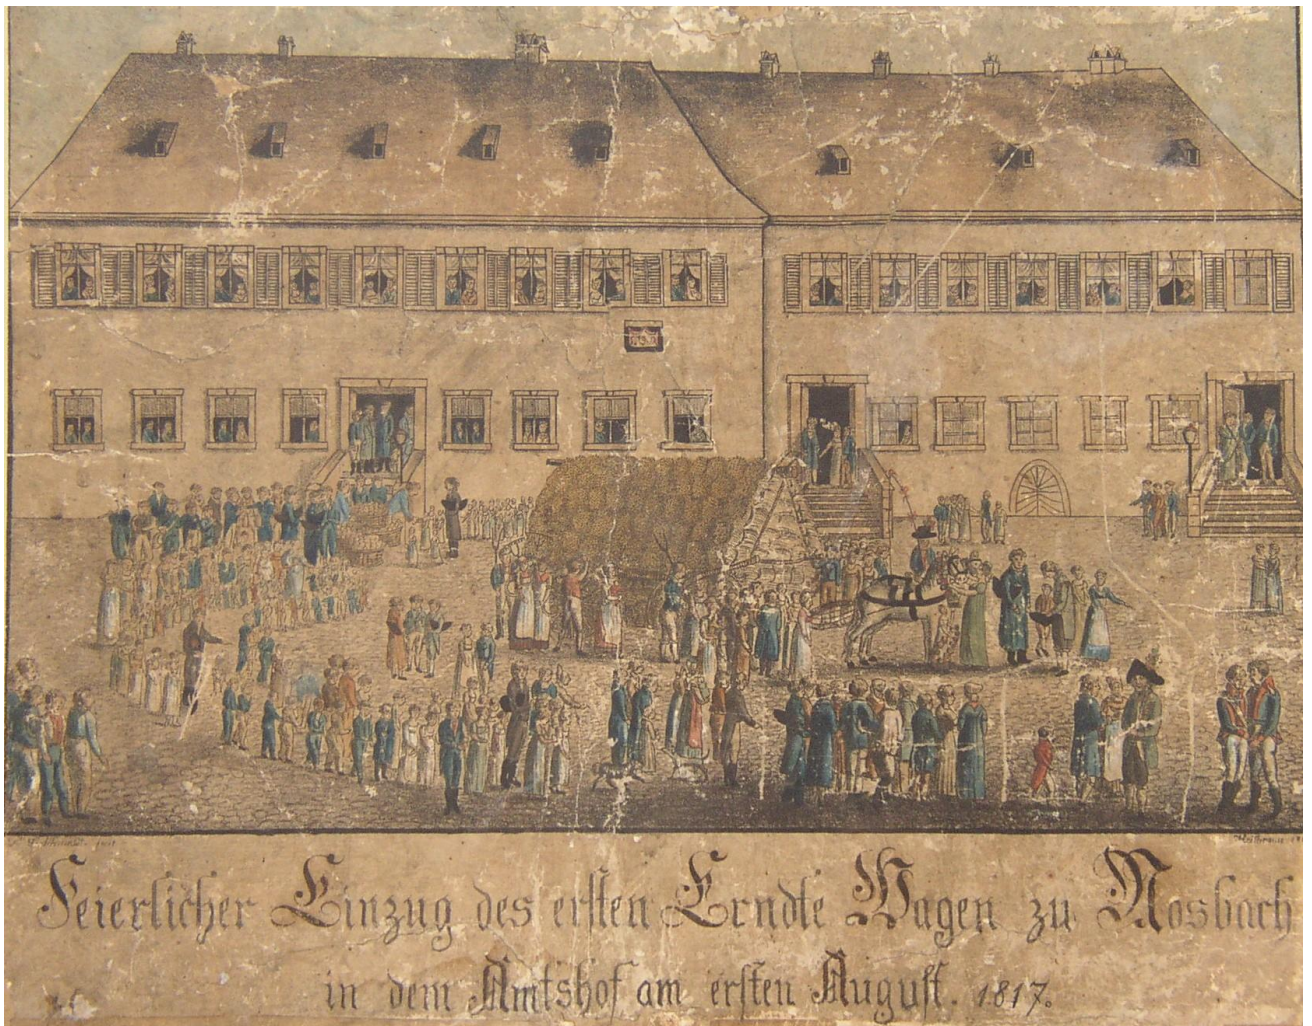 fecit
Heilbronn
Feierlicher Einzug des ersten Erndte Wagen zu Mosbach
in dem Amtshof am ersten August. 1817.